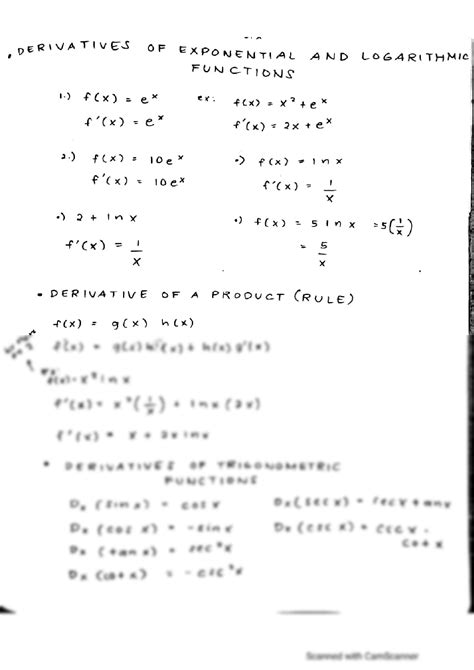 • DERIVATIVES OF EXPONENTIAL AND LOGARITHMIC
FUNCTIONS
1.) f(x) = e^x
f'(x) = e^x
ex: f(x) = x² + e^x
f'(x) = 2x + e^x
2.) f(x) = 10e^x
f'(x) = 10e^x
•) f(x) = ln x
f'(x) = 1/x
•) 2 + ln x
f'(x) = 1/x
•) f(x) = 5 ln x = 5(1/x)
= 5/x
• DERIVATIVE OF A PRODUCT (RULE)
f(x) = g(x) h(x)
f'(x) = g(x) h'(x) + h(x) g'(x)
f(x) = x² ln x
f'(x) = x²(1/x) + ln x (2x)
f'(x) = x + 2x ln x
• DERIVATIVES OF TRIGONOMETRIC
FUNCTIONS
Dx (sin x) = cos x
Dx (cos x) = -sin x
Dx (tan x) = sec²x
Dx (cot x) = -csc²x
Dx (sec x) = sec x tan x
Dx (csc x) = csc x ·
cot x
Scanned with CamScanner